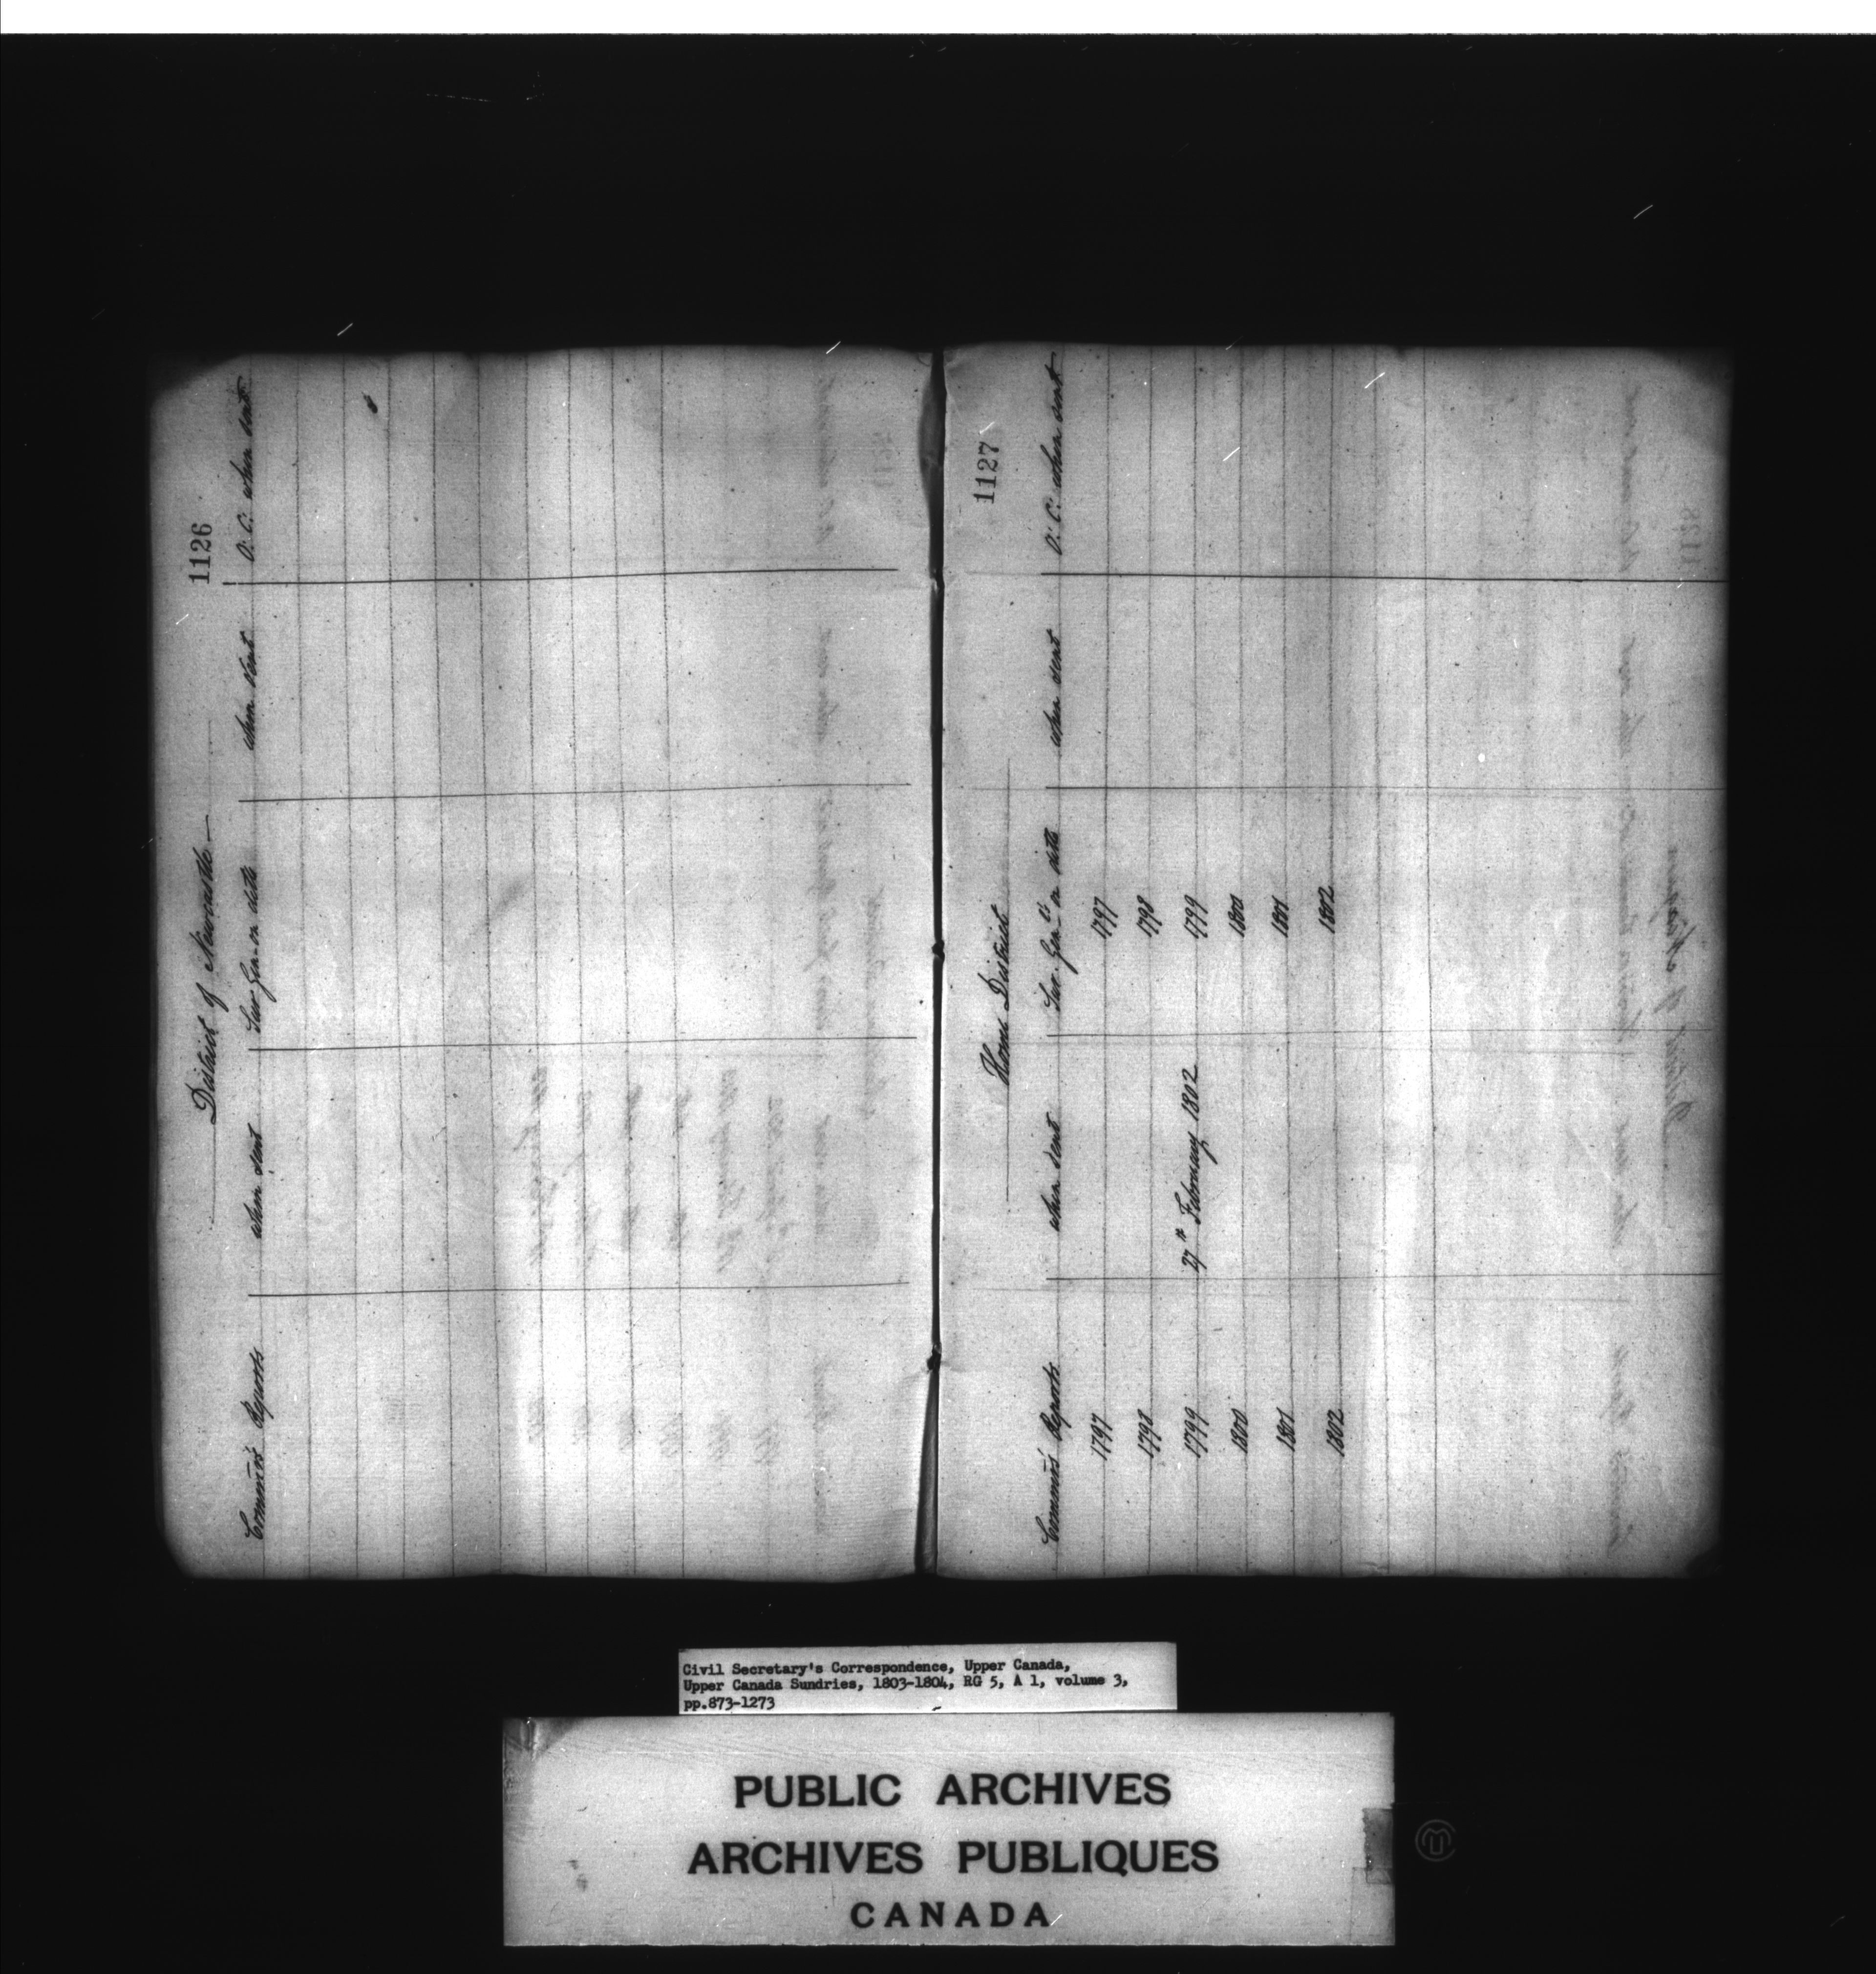 1126
District of Newcastle —
Comm̄rs Reports when sent Sur. Gen. on ditto when sent O. C. when sent
1127
Home District
Comm̄rs Reports when sent Sur. Gen.ls on ditto when sent O. C. when sent
1797 1797
1798 1798
1799 27th February 1802 1799
1800 1800
1801 1801
1802 1802
Civil Secretary's Correspondence, Upper Canada,
Upper Canada Sundries, 1803-1804, RG 5, A 1, volume 3,
pp.873-1273
PUBLIC ARCHIVES
ARCHIVES PUBLIQUES
CANADA